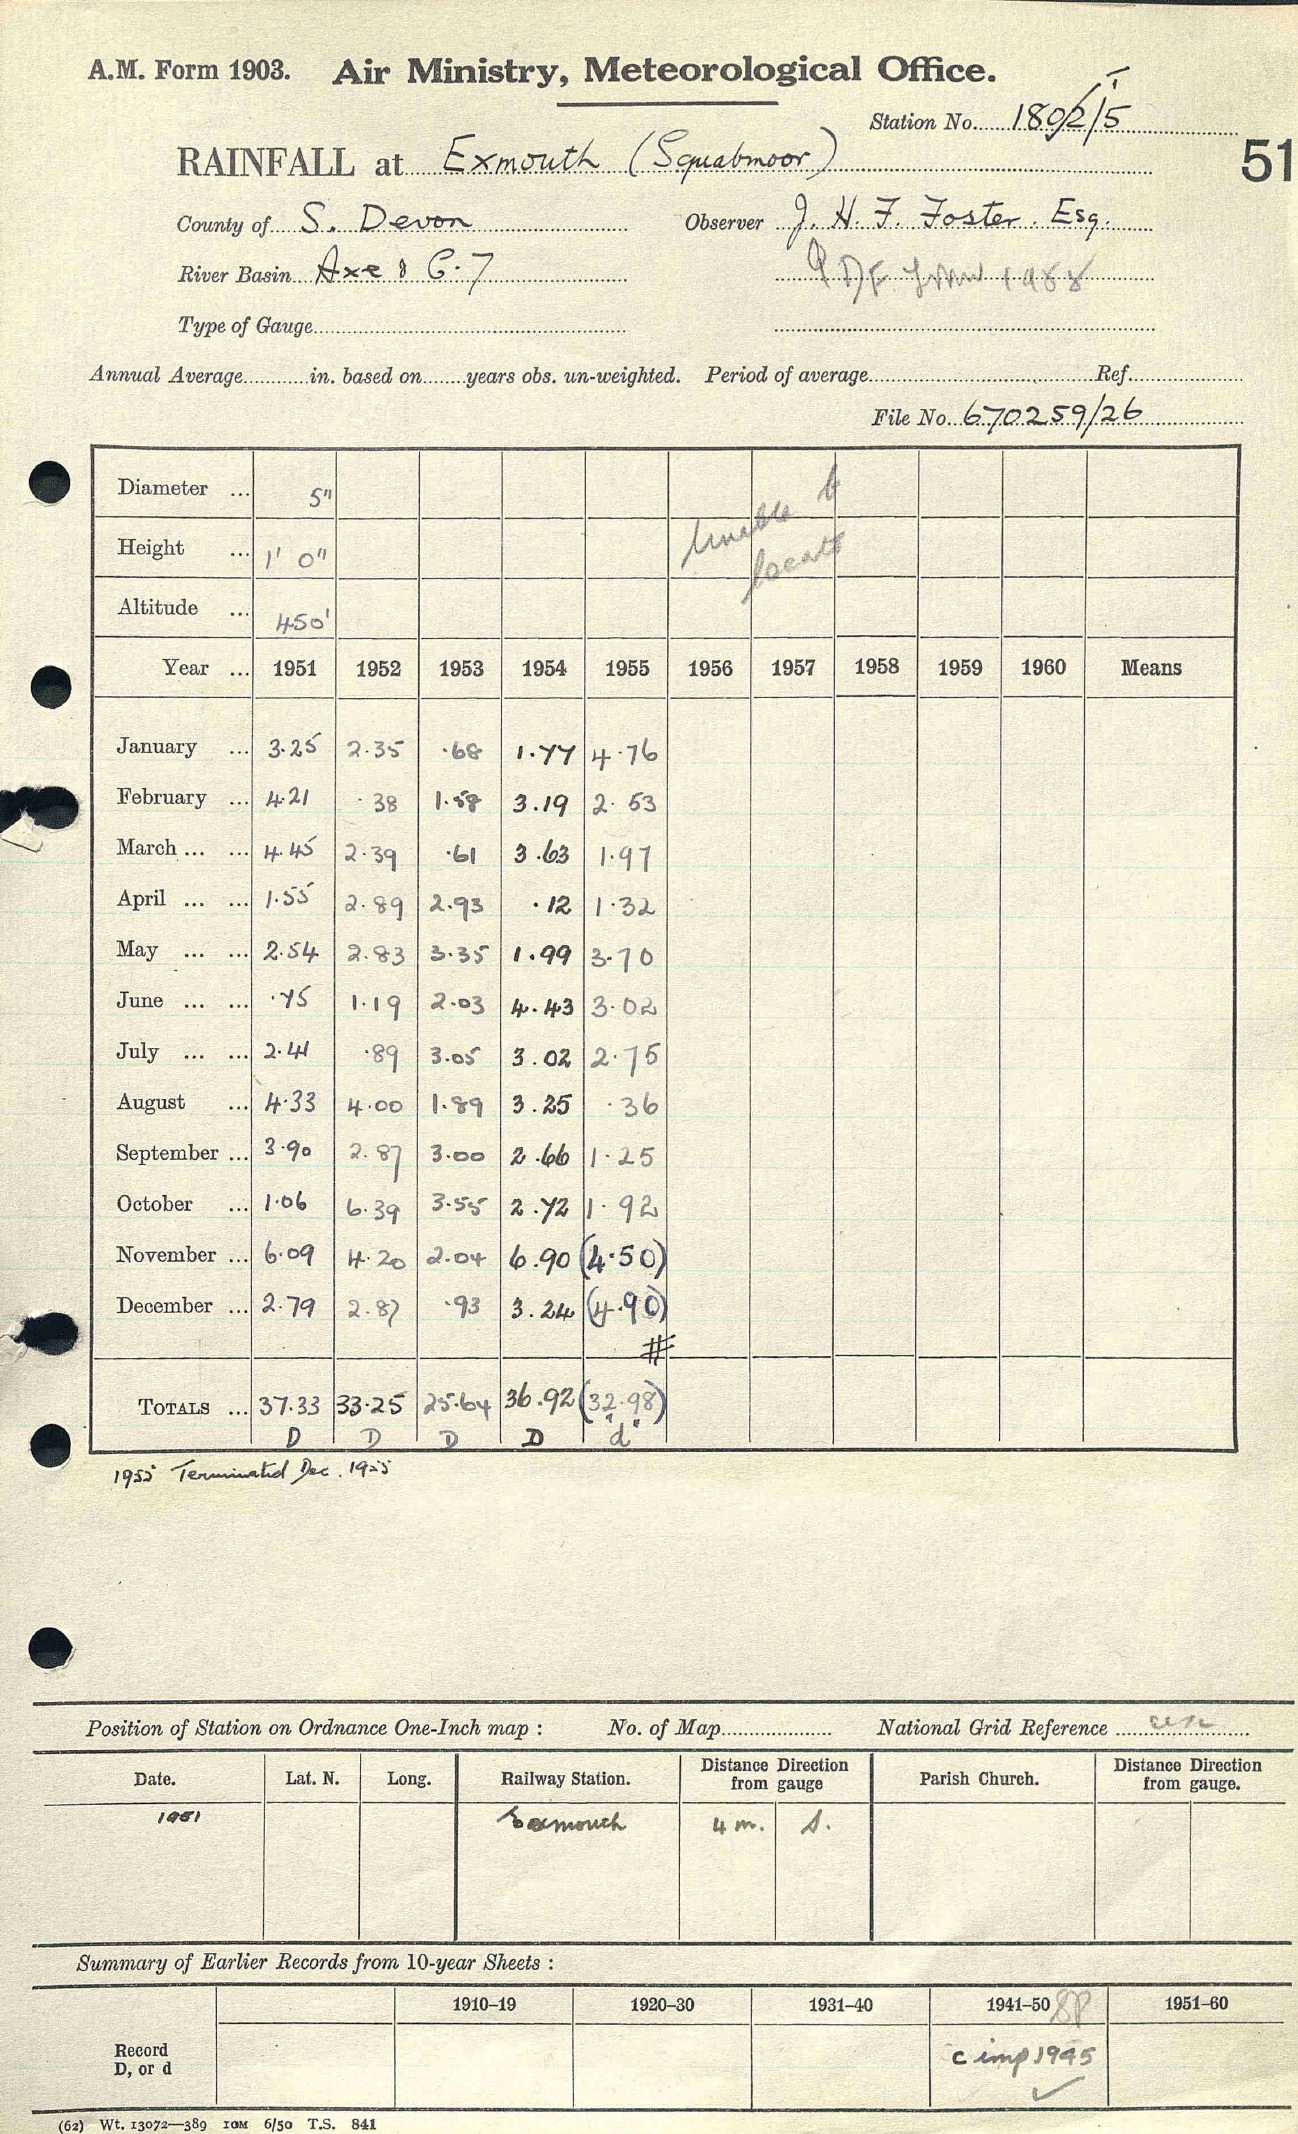 A.M. Form 1903. Air Ministry, Meteorological Office.
Station No. 1802/5
51
RAINFALL at Exmouth (Squabmoor)
County of S. Devon Observer J. H. F. Foster. Esq.
River Basin Axe & C. 7
Type of Gauge
Annual Average in. based on years obs. un-weighted. Period of average Ref.
File No. 670259/26
Diameter ... 5"
Height ... 1' 0"
Unable to locate
Altitude ... 450'
Year ... 1951 1952 1953 1954 1955 1956 1957 1958 1959 1960 Means
January ... 3.25 2.35 .68 1.77 4.76
February ... 4.21 .38 1.58 3.19 2.53
March ... ... 4.45 2.39 .61 3.63 1.97
April ... ... 1.55 2.89 2.93 .12 1.32
May ... ... 2.54 2.83 3.35 1.99 3.70
June ... ... .75 1.19 2.03 4.43 3.02
July ... ... 2.41 .89 3.05 3.02 2.75
August ... 4.33 4.00 1.89 3.25 .36
September ... 3.90 2.87 3.00 2.66 1.25
October ... 1.06 6.39 3.55 2.72 1.92
November ... 6.09 4.20 2.04 6.90 (4.50)
December ... 2.79 2.87 .93 3.24 (4.90)
#
TOTALS ... 37.33 33.25 25.64 36.92 (32.98)
D D D D "d"
1955 Terminated Dec. 1955
Position of Station on Ordnance One-Inch map : No. of Map National Grid Reference
Date. Lat. N. Long. Railway Station. Distance Direction from gauge Parish Church. Distance Direction from gauge.
1951 Exmouth 4 m. S.
Summary of Earlier Records from 10-year Sheets :
1910–19 1920–30 1931–40 1941–50 SP 1951–60
Record D, or d c imp 1945 ✓
(62) Wt. 13072—389 10M 6/50 T.S. 841